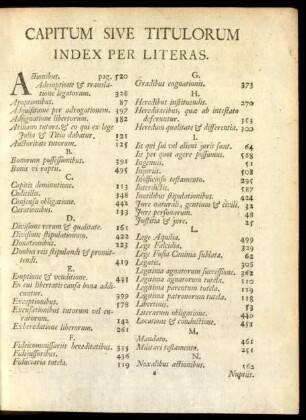 CAPITUM SIVE TITULORUM
INDEX PER LITERAS.
Actionibus. pag. 520
Ademptione & transla-
tione legatorum. 328
Agnationibus. 87
Adquisitione per adrogationem. 397
Adsignatione libertorum. 382
Atiliano tutore, & eo qui ex lege
Julia & Titia dabatur, 121
Auctoritate tutorum. 125
B.
Bonorum possessionibus. 391
Bonis vi raptis. 495
C.
Capitis diminutione. 113
Codicillis. 348
Consensu obligatione. 442
Curationibus. 133
D.
Divisione rerum & qualitate. 161
Divisione stipulationum. 422
Donationibus. 223
Duobus reis stipulandi & promit-
tendi. 419
E.
Emptione & venditione. 443
Eo cui libertatis causa bona addi-
cuntur. 399
Exceptionibus. 578
Excusationibus tutorum vel cu-
ratorum. 142
Exheredatione liberorum. 261
F.
Fideicommissariis hereditatibus. 315
Fidejussoribus. 436
Fiduciaria tutela. 119
G.
Gradibus cognationis. 373
H.
Heredibus instituendis. 270
Hereditatibus, quæ ab intestato
deferuntur. 353
Heredum qualitate & differentia. 300
I.
Iis qui sui vel alieni juris sunt. 64
Iis per quos agere possumus. 568
Ingenuis. 51
Injuriis. 508
Inofficioso testamento. 295
Interdictis. 587
Inutilibus stipulationibus. 424
Jure naturali, gentium & civili. 32
Jure personarum. 48
Justitia & jure. 25
L.
Lege Aquilia. 499
Lege Falcidia. 329
Lege Fusia Caninia sublata. 62
Legatis. 305
Legitima agnatorum successione. 362
Legitima agnatorum tutela. 110
Legitima parentum tutela. 119
Legitima patronorum tutela. 118
Libertinis. 53
Literarum obligatione. 440
Locatione & conductione. 451
M.
Mandato. 461
Militari testamento. 251
N.
Noxalibus actionibus. 562
a Nuptiis.